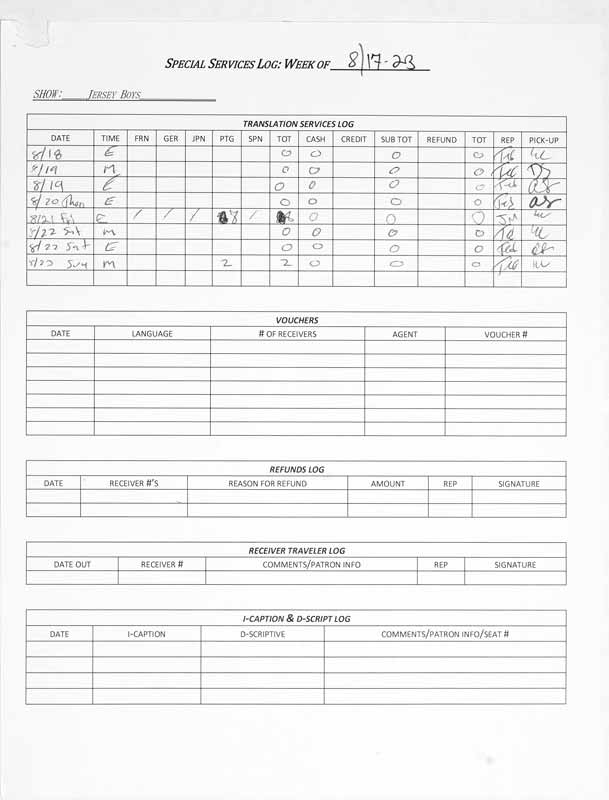 SPECIAL SERVICES LOG: WEEK OF 8/17-23
SHOW: JERSEY BOYS
TRANSLATION SERVICES LOG
DATE TIME FRN GER JPN PTG SPN TOT CASH CREDIT SUB TOT REFUND TOT REP PICK-UP
8/18 E 0 0 0 0 Ted
8/19 M 0 0 0 0 Ted
8/19 E 0 0 0 0 Ted
8/20 E 0 0 0 0 Ted
8/21 Fri E / / / 8 / 8 0 0 0
8/22 Sat M 0 0 0 0
8/22 Sat E 0 0 0 0 Ted
8/23 Sun M 2 2 0 0 0 Ted
VOUCHERS
DATE LANGUAGE # OF RECEIVERS AGENT VOUCHER #
REFUNDS LOG
DATE RECEIVER #'S REASON FOR REFUND AMOUNT REP SIGNATURE
RECEIVER TRAVELER LOG
DATE OUT RECEIVER # COMMENTS/PATRON INFO REP SIGNATURE
I-CAPTION & D-SCRIPT LOG
DATE I-CAPTION D-SCRIPTIVE COMMENTS/PATRON INFO/SEAT #